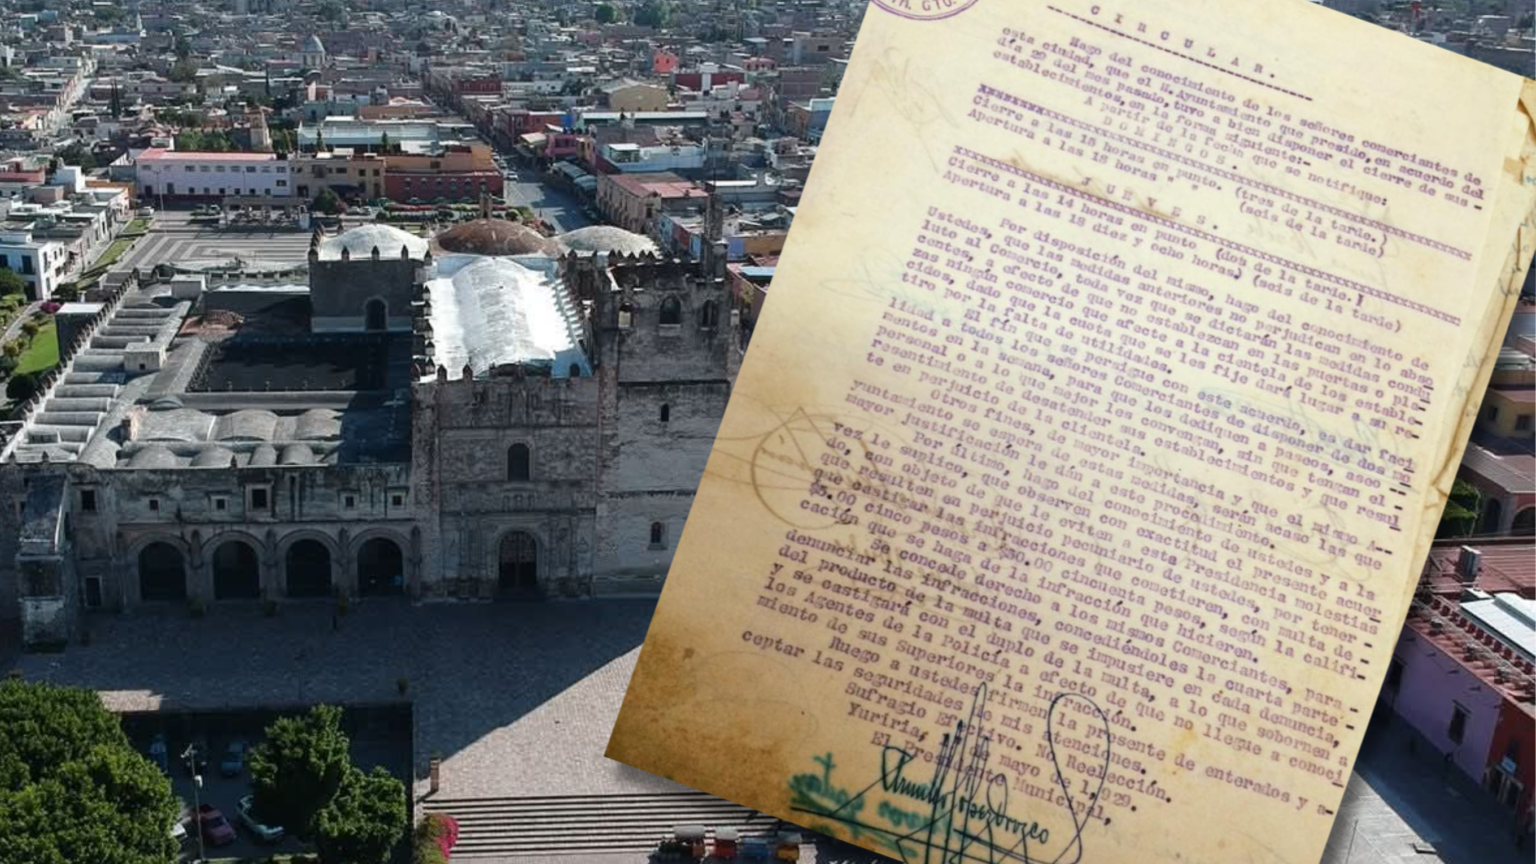 TM. GTO.
C I R C U L A R .
Hago del conocimiento de los señores comerciantes de
esta ciudad, que el H. Ayuntamiento que preside, en acuerdo del
día 29 del mes pasado, tuvo a bien disponer el cierre de sus -
establecimientos, en la forma siguiente:-
A partir de la fecha que se notifique:
D O M I N G O S .
Cierre a las 15 horas en punto. (tres de la tarde.)
Apertura a las 18 horas " " (seis de la tarde)
J U E V E S .
Cierre a las 14 horas en punto (dos de la tarde.)
Apertura a las 18 diez y ocho horas) (seis de la tarde)
Por disposición del mismo, hago del conocimiento de
Ustedes, que las medidas anteriores no perjudican en lo abso
luto al Comercio, toda vez que se dictarán las medidas condu
centes, a efecto de que no establezcan en las puertas o pla-
zas ningún comercio que afecte a la clientela de los estable-
cidos, dado que la cuota que se les fije dará lugar a su re-
tiro por la falta de utilidades.
El fin que se persigue con este acuerdo, es dar faci
lidad a todos los señores Comerciantes de disponer de dos mo
mentos en la semana, para que los dediquen a paseos, aseo --
personal o a lo que mejor les convengan, sin que tengan el -
resentimiento de desatender sus establecimientos y que resul
te en perjuicio de la clientela.
Otros fines, de mayor importancia y que el mismo A--
yuntamiento se espera de estas medidas, serán acaso las que
mayor justificación le dán a este procedimiento.
Por último, hago del conocimiento de ustedes y a la
vez le suplico, que observen con exactitud el presente acuer
do, con objeto de que le eviten a esta Presidencia molestias
que resulten en perjuicio pecuniario de ustedes, por tener -
que castigar las infracciones que cometieren, con multa de -
$5.00 cinco pesos a $50.00 cincuenta pesos, según la califi-
cación que se haga de la infracción que hicieren.
Se concede derecho a los mismos Comerciantes, para -
denunciar las infracciones, concediéndoles la cuarta parte -
del producto de la multa que se impusiere en cada denuncia,
y se castigará con el duplo de la multa, a lo que sobornen a
los Agentes de la Policía a efecto de que no llegue a conoci
miento de sus Superiores la infracción.
Ruego a ustedes firmen la presente de enterados y a-
ceptar las seguridades de mis atenciones.
Sufragio Efectivo. No Reelección.
Yuriria, de mayo de 1,929.
El Presidente Municipal,